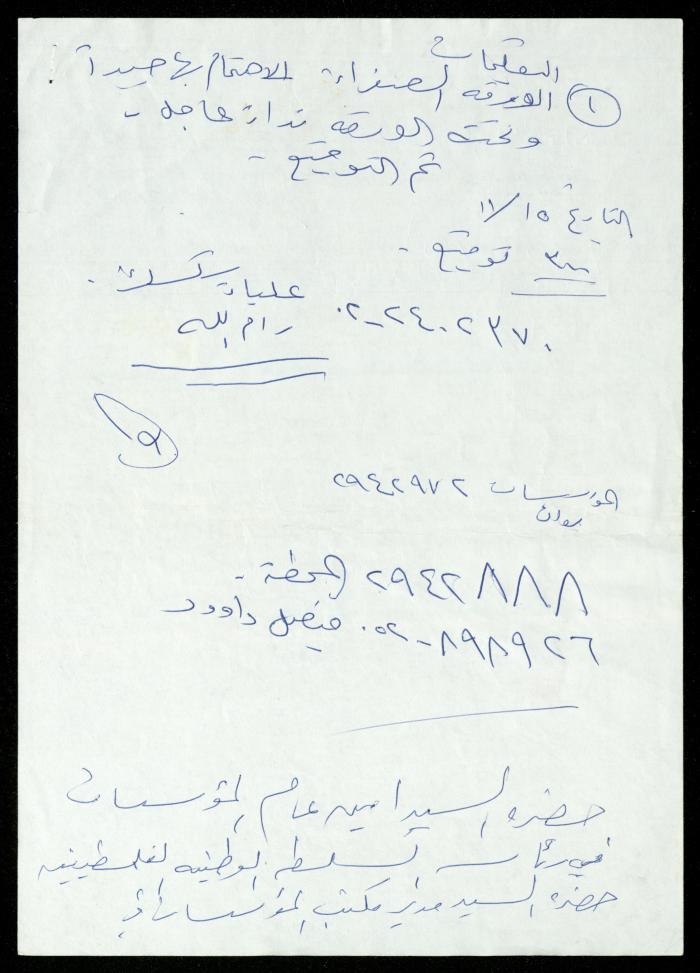 التعليمات
١ الورقة الصفراء الاهتمام بها جيداً
وتحت الورقة نداء عاجل -
ثم التوقيع -
التاريخ ١٥/١١
٣٠٠ توقيع -
رام الله
٠٢-٢٤٠٢٣٧٠
المؤسسات ٢٩٤٢٩٧٢
٢٩٤٢٨٨٨ المحطة -
٠٥٢-٨٩٨٩٢٦ فيصل داوود
حضرة السيد امين عام المؤسسات
في رئاسة السلطة الوطنية الفلسطينية
حضرة السيد مدير مكتب المؤسسات